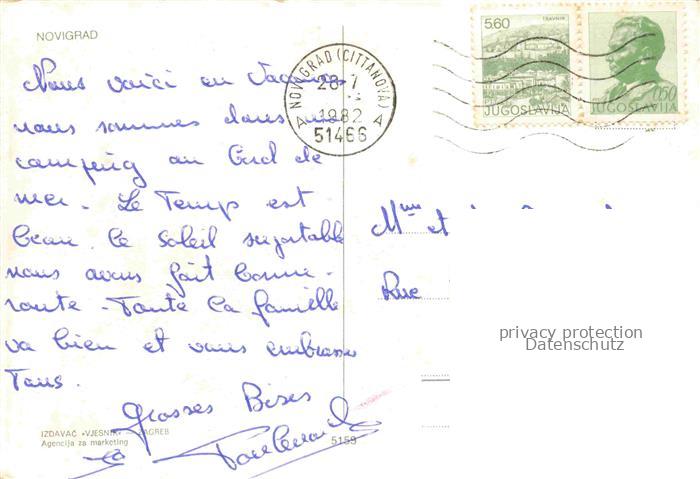 NOVIGRAD
5.60
TRAVNIK
JUGOSLAVIJA
0.50
JUGOSLAVIJA
NOVIGRAD (CITTANOVA)
28-7
1982
A A
51466
Nous voici en vacances
nous sommes dans un
camping au bord de
mer. Le Temps est
beau. le soleil suportable
nous avons fait bonne
route. Toute la famille
va bien et vous embrasse
Tous.
Grosses Bises
Mme et
Rue
privacy protection
Datenschutz
IZDAVAČ »VJESNIK« — ZAGREB
Agencija za marketing
5153